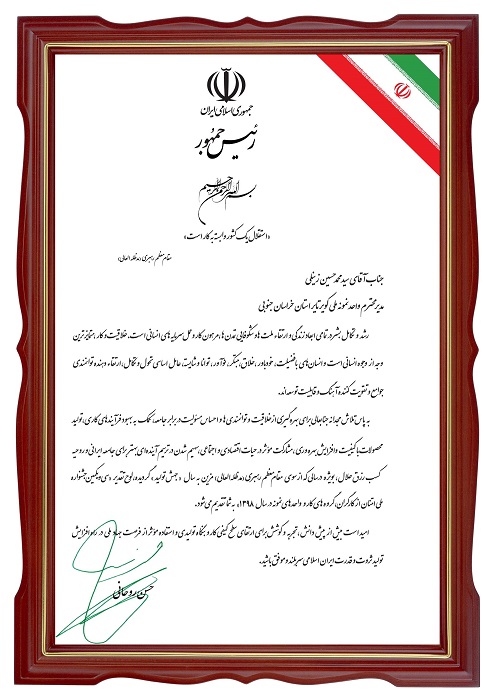 جمهوری اسلامی ایران
رئیس جمهور
بسم الله الرحمن الرحیم
«استقلال یک کشور وابسته به کار است»
مقام معظم رهبری (مدظله العالی)
جناب آقای سید محمد حسین زینلی
مدیر محترم واحد نمونه ملی کویر تایر استان خراسان جنوبی
رشد و تکامل بشر در تمامی ابعاد زندگی و ارتقاء ملت ها و شکوفایی تمدن ها، مرهون کار و عمل سرمایه های انسانی است. خلاقیت و کار، متمایزترین
وجه از وجوه انسانی است و انسان های با فضیلت، خودباور، خلاق، مبتکر، نوآور، توانا و شایسته، عامل اساسی تحول و تکامل، ارتقاء دهنده توانمندی
جوامع و تقویت کننده آهنگ و قابلیت توسعه اند.
به پاس تلاش مجدانه جنابعالی برای بهره گیری از خلاقیت و توانمندی ها و احساس مسئولیت در برابر جامعه، کمک به بهبود فرآیندهای کاری، تولید
محصولات با کیفیت و افزایش بهره وری، مشارکت مؤثر در حیات اقتصادی و اجتماعی، سهیم شدن در ترسیم آینده ای بهتر برای جامعه ایرانی و روحیه
کسب رزق حلال، بویژه در سالی که از سوی مقام معظم رهبری (مدظله العالی)، مزین به سال «جهش تولید» گردیده، لوح تقدیر «سی و یکمین جشنواره
ملی امتنان از کارگران، گروه های کار و واحدهای نمونه در سال ۱۳۹۸» به شما تقدیم می شود.
امید است بیش از پیش دانش، تجربه و کوشش برای ارتقای سطح کیفی کار و بنگاه تولیدی و استفاده مؤثر از فرصت جهاد ملی در راه افزایش
تولید ثروت و قدرت ایران اسلامی سربلند و موفق باشید.
حسن روحانی